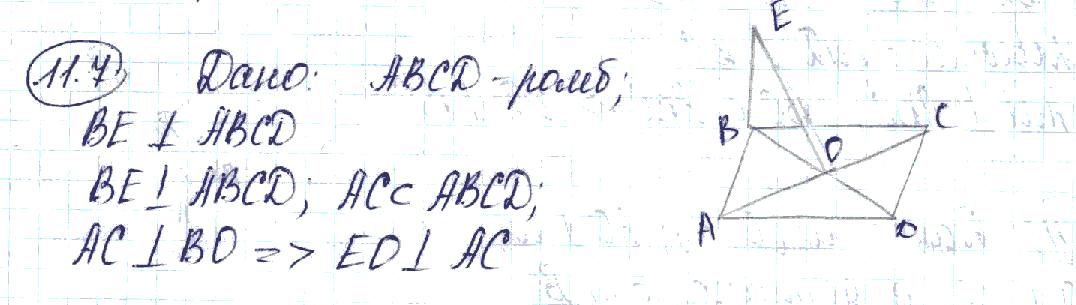 11.7 Дано: ABCD - ромб;
BE ⊥ ABCD
BE ⊥ ABCD; AC ⊂ ABCD;
AC ⊥ BO => EO ⊥ AC
E
B
C
O
A
D